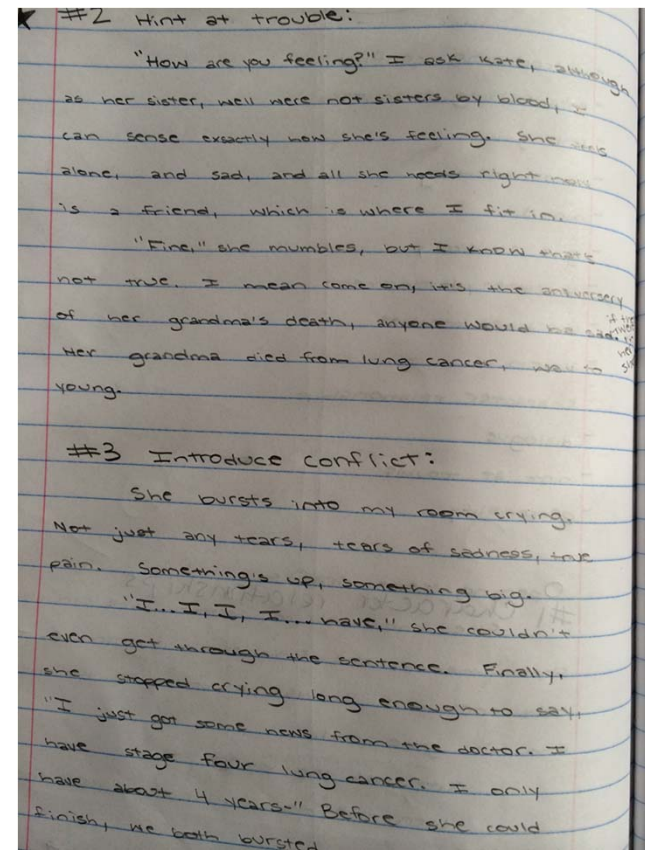 #2 Hint at trouble:
"How are you feeling?" I ask Kate, although
as her sister, well were not sisters by blood, I
can sense exsactly how she's feeling. She
alone, and sad, and all she needs right now
is a friend, which is where I fit in.
"Fine," she mumbles, but I know that's
not true. I mean come on, it's the aniversery
of her grandma's death, anyone would be sad.
Her grandma died from lung cancer, way to
young.
#3 Introduce conflict:
She bursts into my room crying.
Not just any tears, tears of sadness, true
pain. Something's up, something big.
"I... I, I, I... have," she couldn't
even get through the sentence. Finally,
she stopped crying long enough to say,
"I just got some news from the doctor. I
have stage four lung cancer. I only
have about 4 years-" Before she could
finish, we both bursted